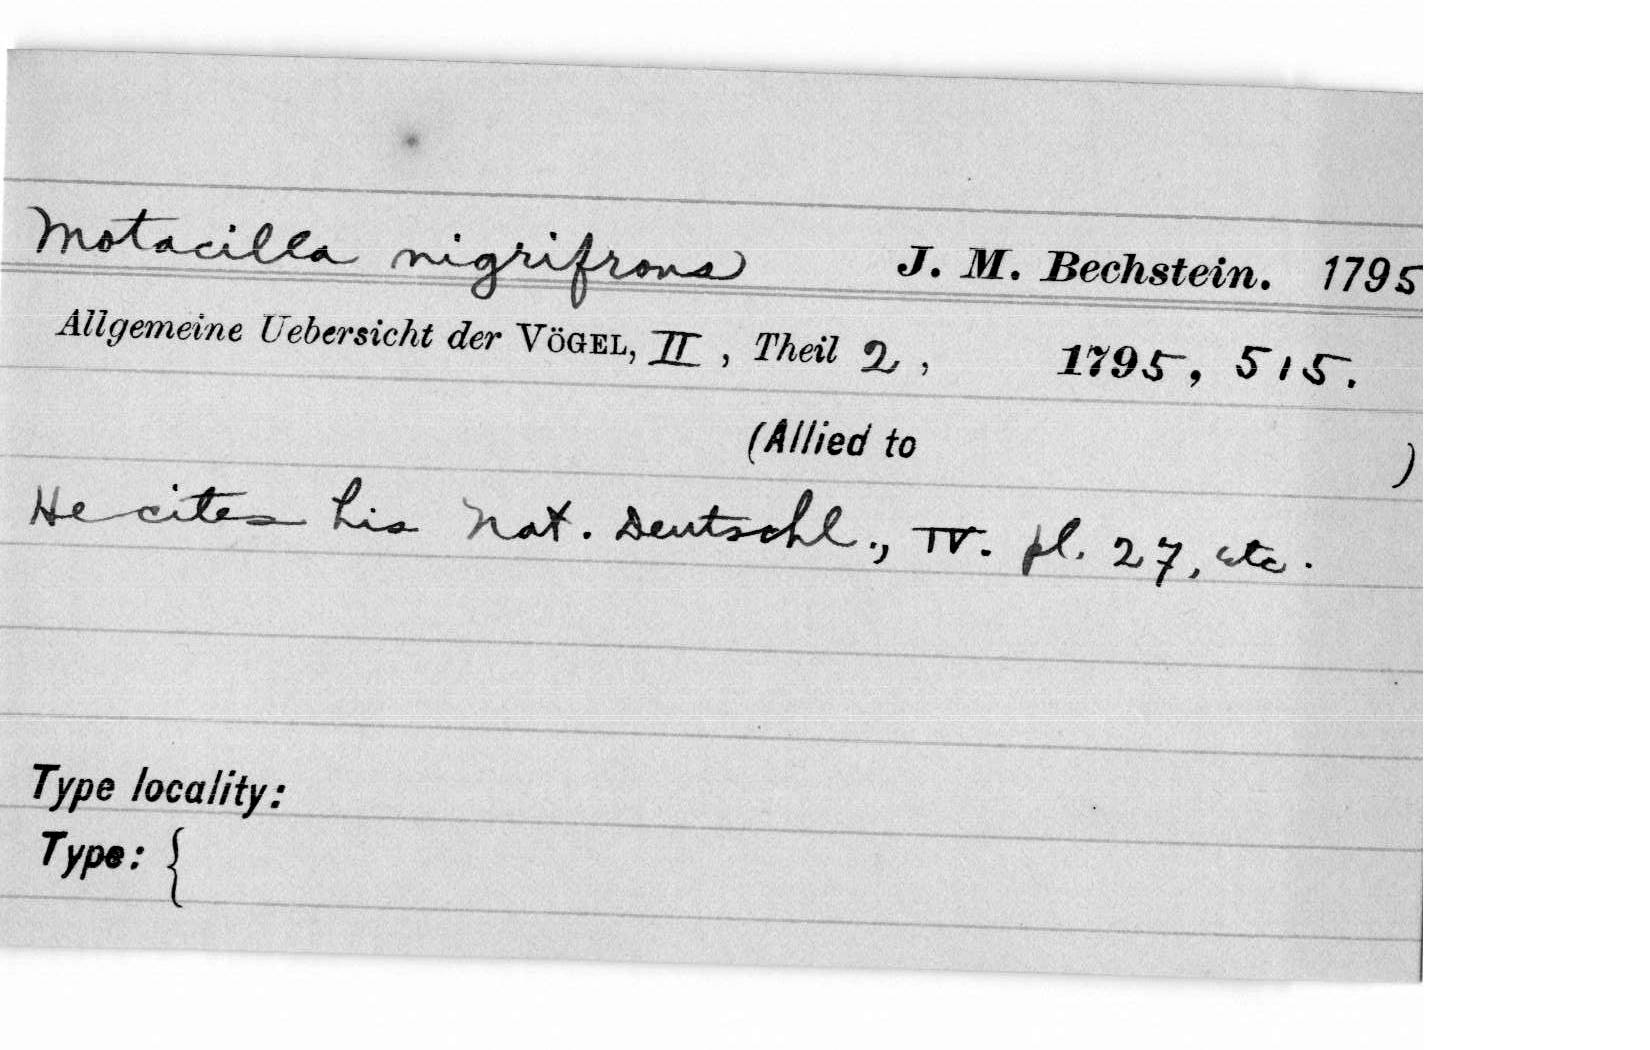 Motacilla nigrifrons J. M. Bechstein. 1795
Allgemeine Uebersicht der VÖGEL, II, Theil 2, 1795, 515.
(Allied to )
He cites his Nat. Deutschl., IV. pl. 27, etc.
Type locality:
Type: {